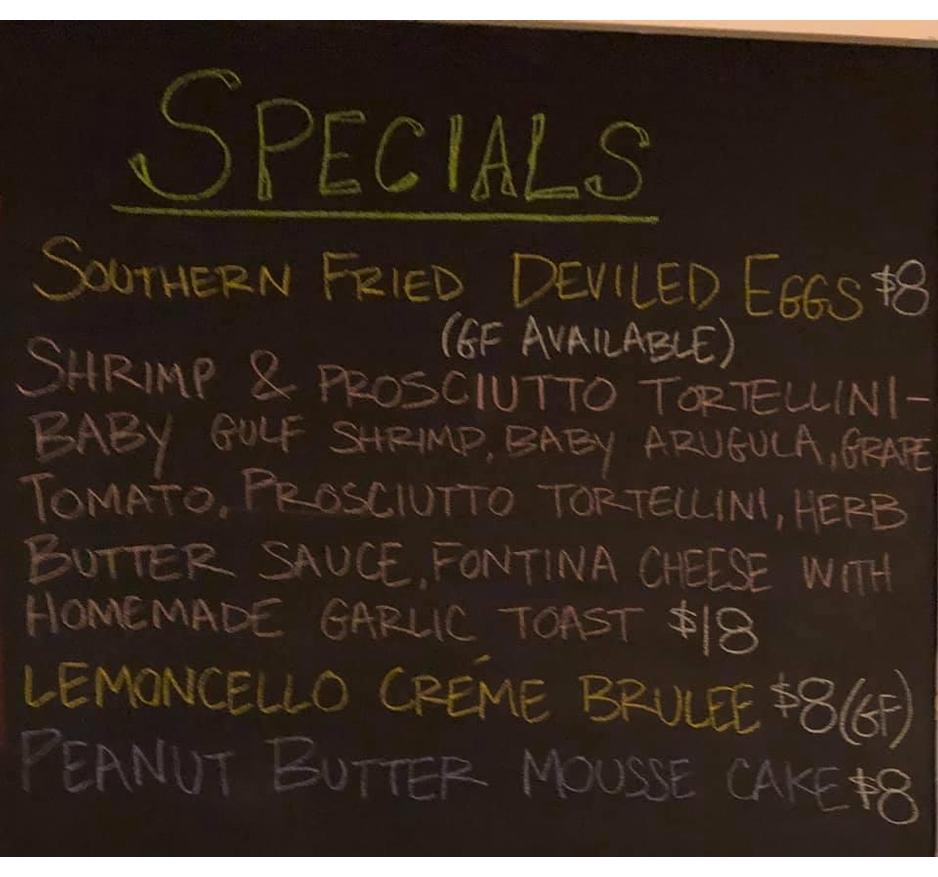 SPECIALS
SOUTHERN FRIED DEVILED EGGS $8
(GF AVAILABLE)
SHRIMP & PROSCIUTTO TORTELLINI-
BABY GULF SHRIMP, BABY ARUGULA, GRAPE
TOMATO, PROSCIUTTO TORTELLINI, HERB
BUTTER SAUCE, FONTINA CHEESE WITH
HOMEMADE GARLIC TOAST $18
LEMONCELLO CRÉME BRULEE $8 (GF)
PEANUT BUTTER MOUSSE CAKE $8